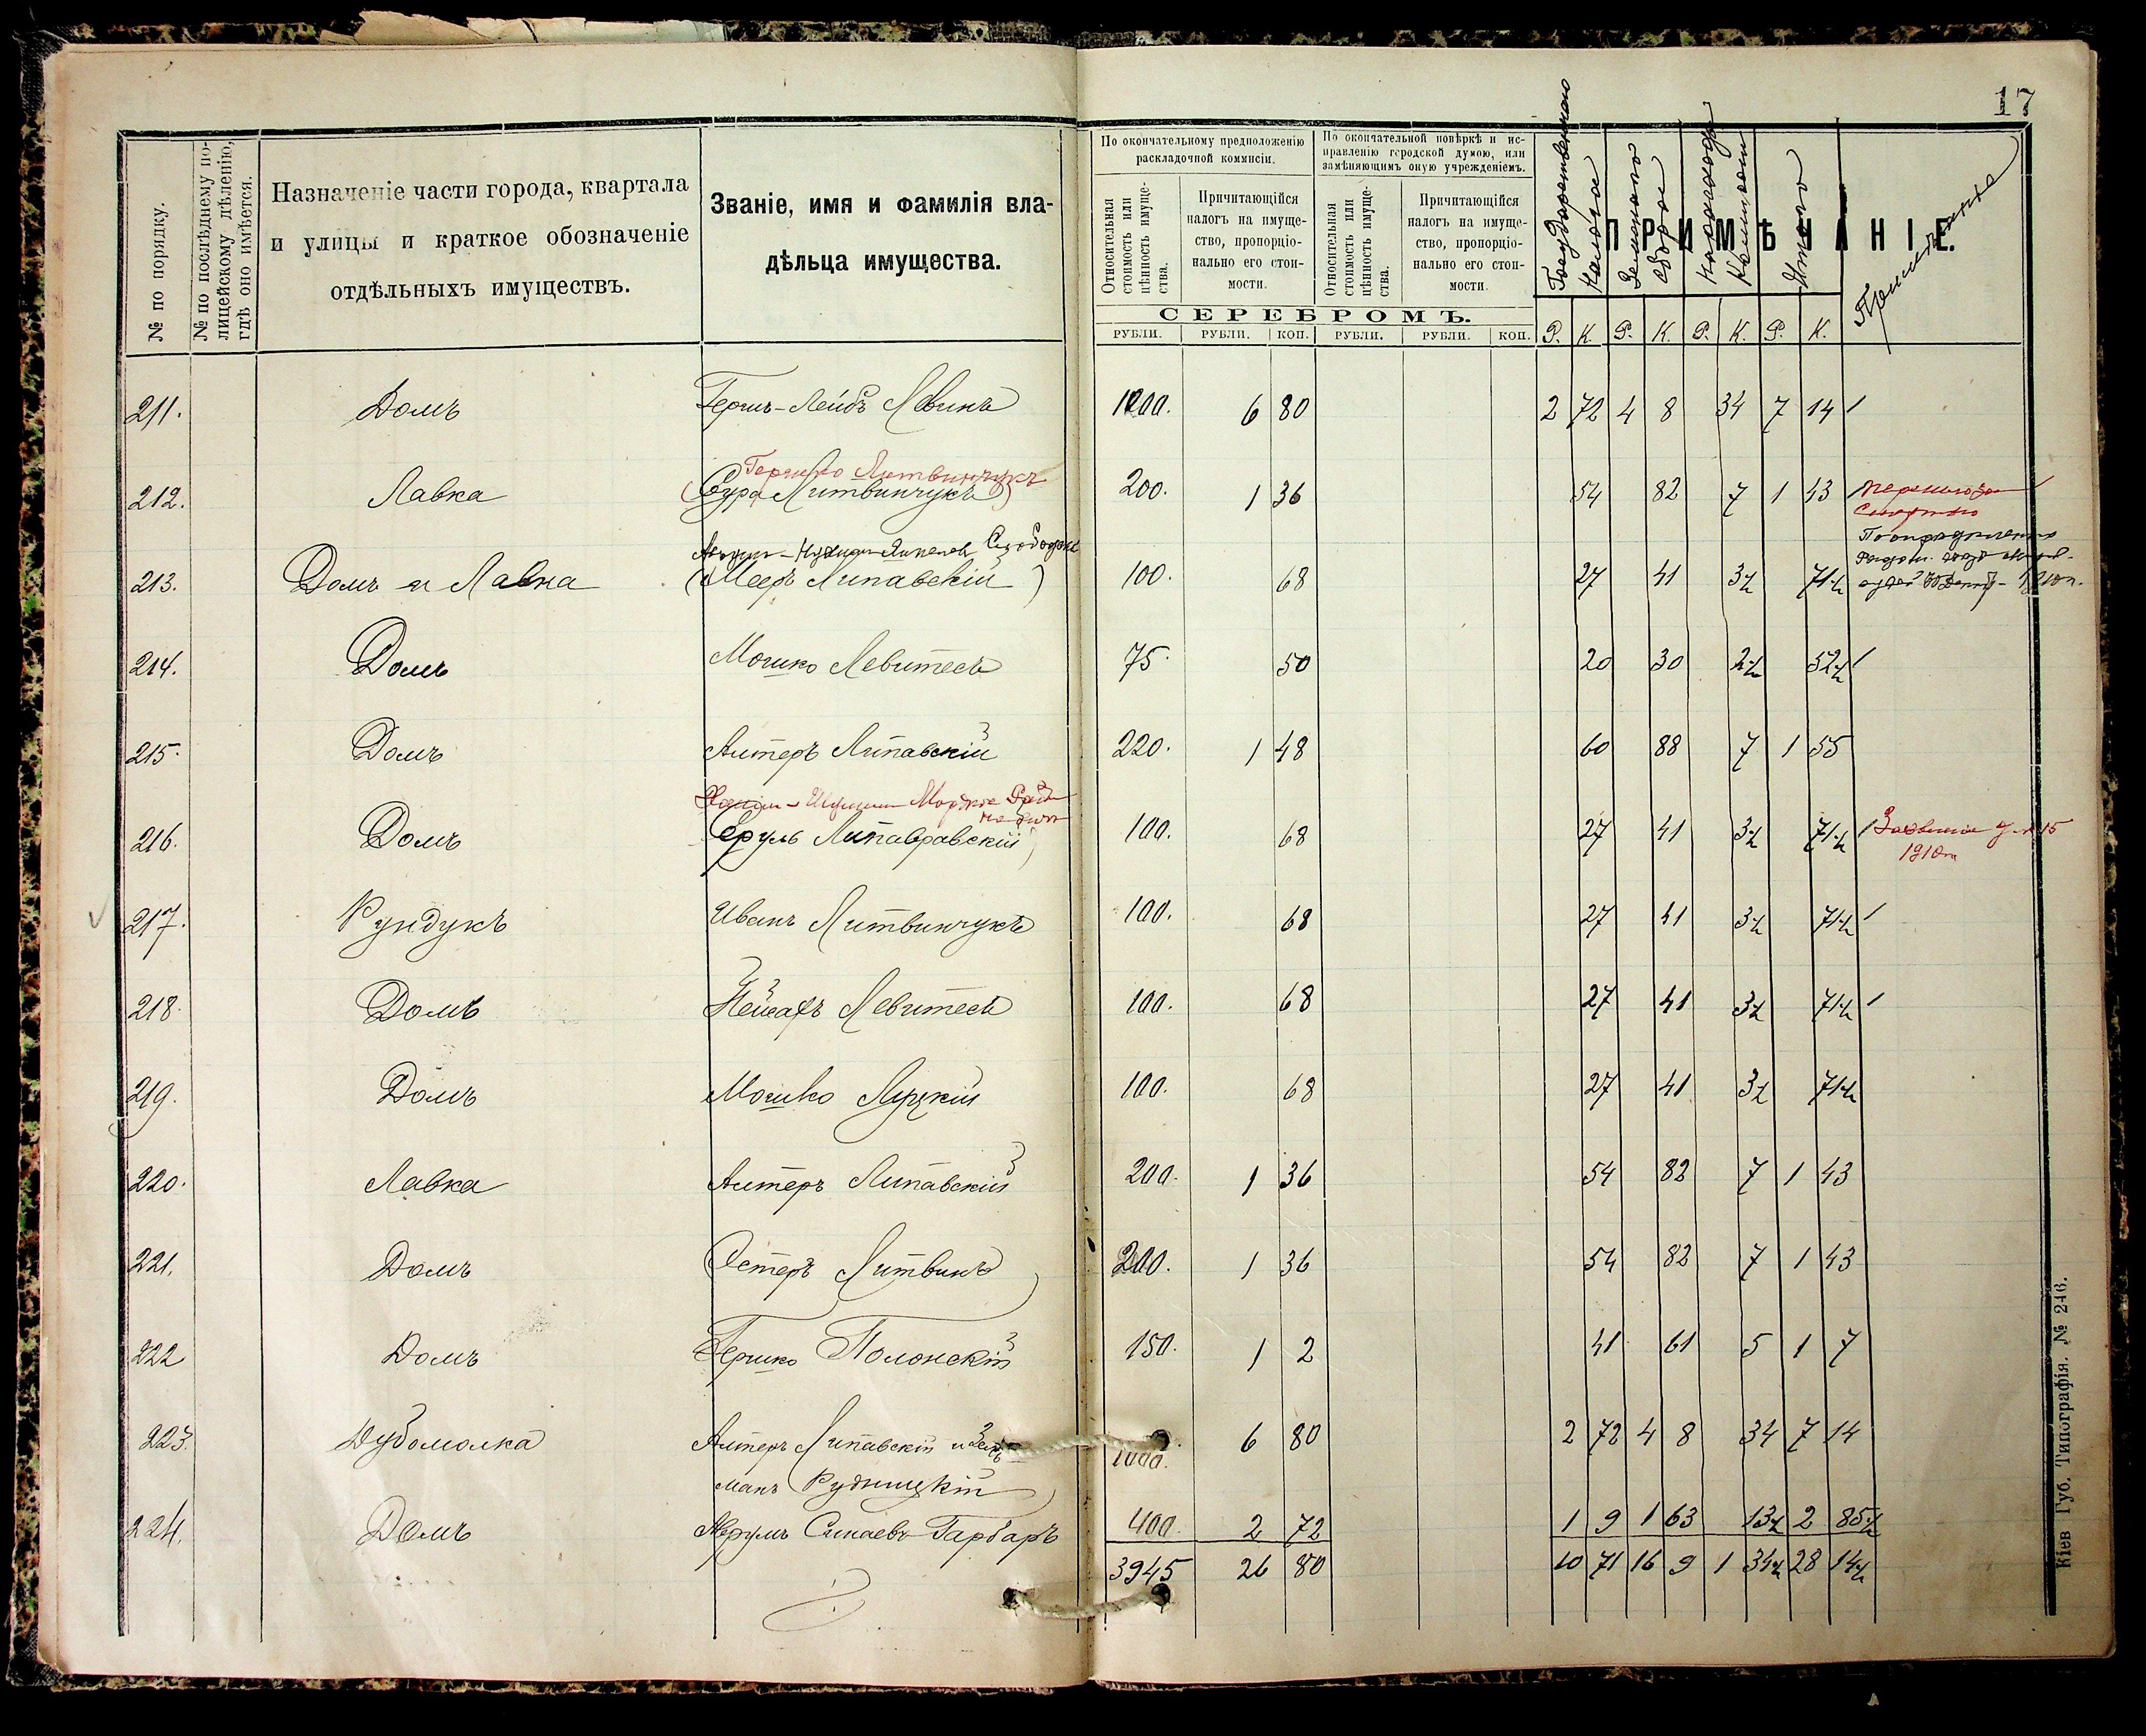 17
№ по порядку.
№ по послѣднему по-
лицейскому дѣленію,
гдѣ оно имѣется.
Назначеніе части города, квартала
и улицы и краткое обозначеніе
отдѣльныхъ имуществъ.
Званіе, имя и фамилія вла-
дѣльца имущества.
По окончательному предположенію
раскладочной коммисіи.
По окончательной повѣркѣ и ис-
правленію городской думою, или
замѣняющимъ оную учрежденіемъ.
Относительная
стоимость или
цѣнность имуще-
ства.
Причитающійся
налогъ на имуще-
ство, пропорціо-
нально его стои-
мости.
Относительная
стоимость или
цѣнность имуще-
ства.
Причитающійся
налогъ на имуще-
ство, пропорціо-
нально его стои-
мости.
Государственного
Налога
Земского
сбора
Итого
ПРИМѢЧАНІЕ.
Примѣчаніе
СЕРЕБРОМЪ.
РУБЛИ. РУБЛИ. КОП. РУБЛИ. РУБЛИ. КОП. Р. К. Р. К. Р. К. Р. К.
211. Домъ Герш-Лейбъ Левинъ 1000. 6 80 2 72 4 8 34 7 14
Гершко Литвинчукъ
212. Лавка (Сура Литвинчукъ) 200. 1 36 54 82 7 1 43
213. Домъ и Лавка (Мееръ Липавскій) 100. 68 27 41 3½ 71½
214. Домъ Мошко Левитесъ 75. 50 20 30 2½ 52½
215. Домъ Алтеръ Липавскій 220. 1 48 60 88 7 1 55
216. Домъ Сруль 100. 68 27 41 3½ 71½ Заявленіе
1910
217. Рундукъ Иванъ Литвинчукъ 100. 68 27 41 3½ 71½
218. Домъ Пейсахъ Левитесъ 100. 68 27 41 3½ 71½
219. Домъ Мошко Луцкій 100. 68 27 41 3½ 71½
220. Лавка Алтеръ Липавскій 200. 1 36 54 82 7 1 43
221. Домъ Эстеръ Литвинъ 200. 1 36 54 82 7 1 43
222 Домъ Гершко Полонскій 150. 1 2 41 61 5 1 7
223. Дубомолка Алтеръ Липавскій и Зель-
манъ Рудницкій 1000. 6 80 2 72 4 8 34 7 14
224. Домъ Гарбаръ 400. 2 72 1 9 1 63 13½ 2 85½
3945 26 80 10 71 16 9 1 34½ 28 14½
Кіев Губ. Типографія. № 246.